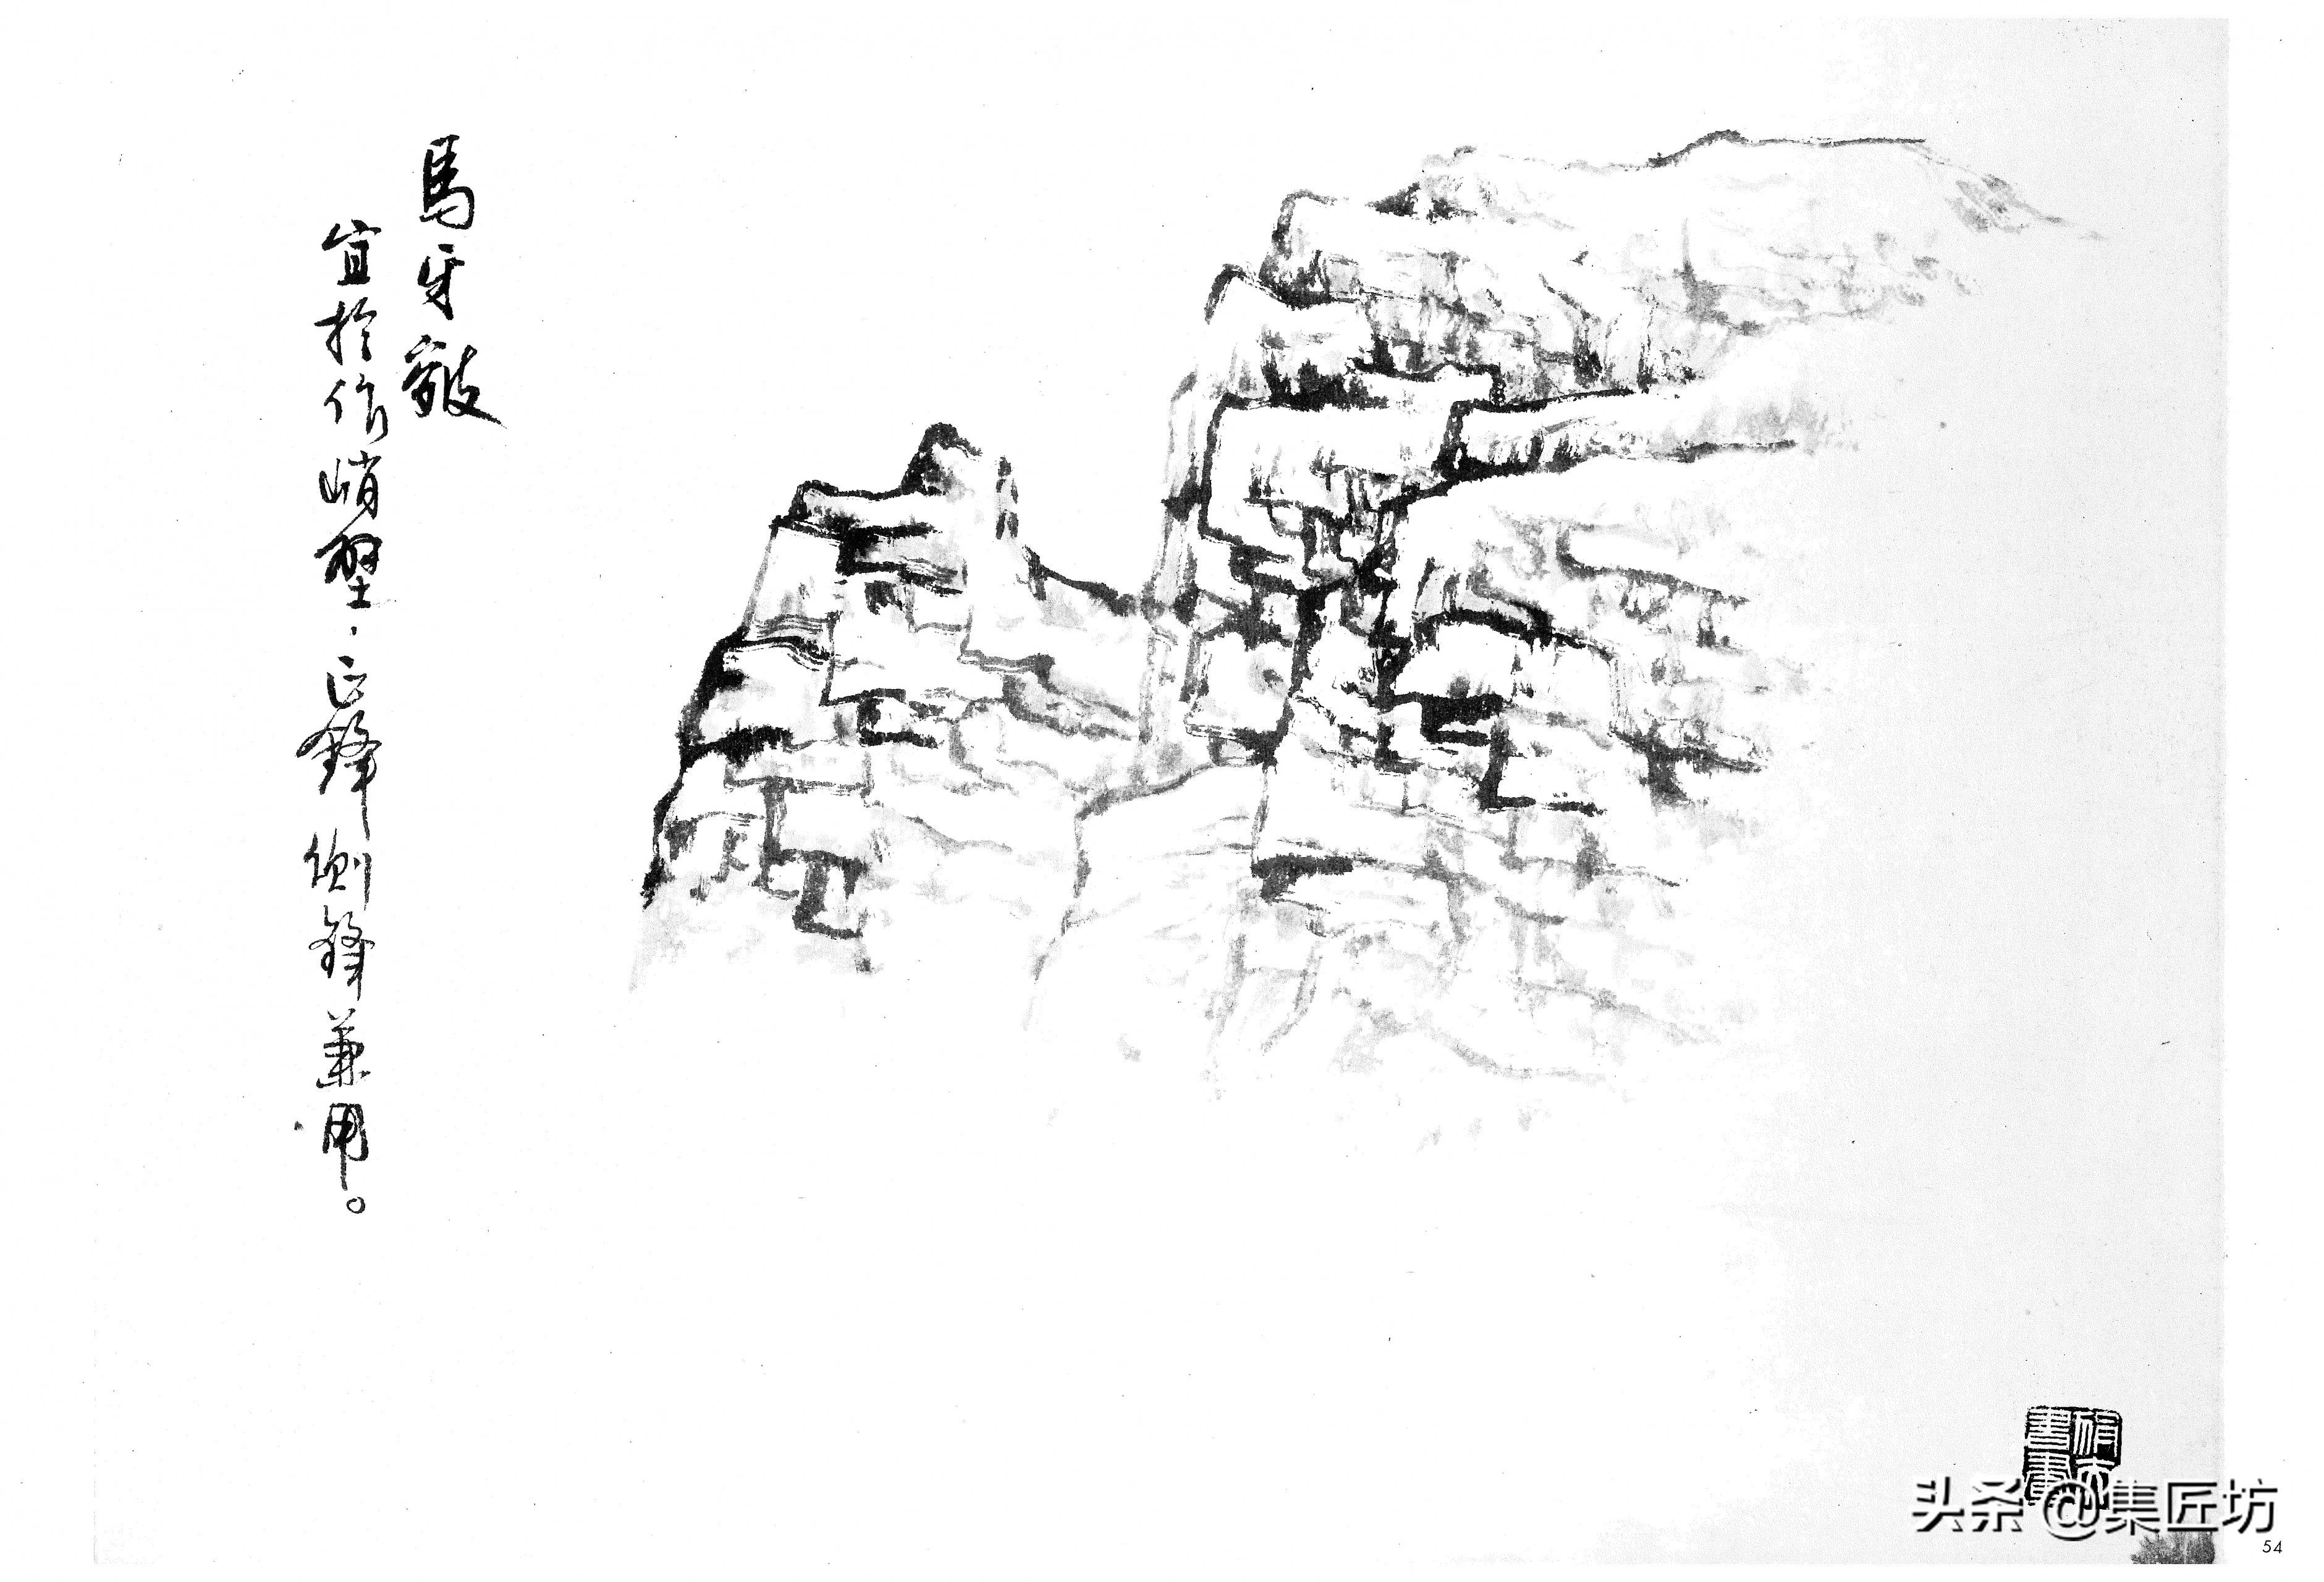 馬牙皴
宜於作峭壁，正鋒側鋒兼用。
头条@集匠坊
54